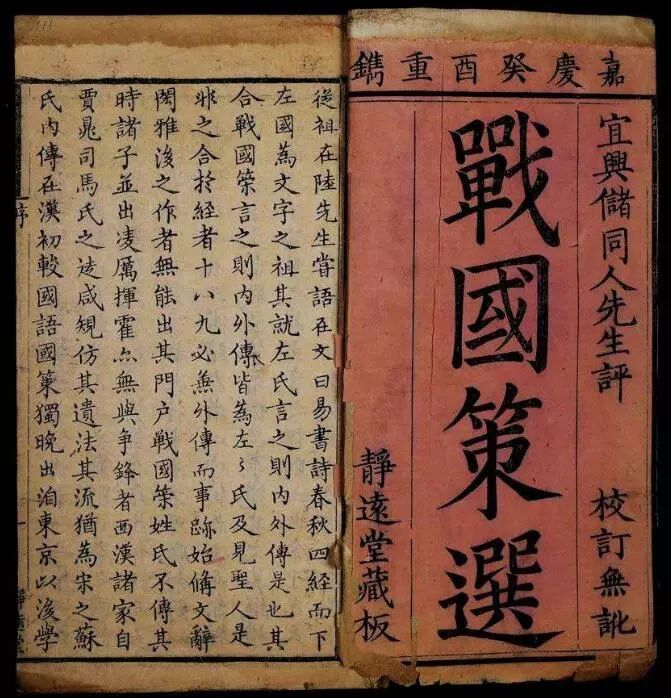 嘉慶癸酉重鐫
宜興儲同人先生評 校訂無訛
戰國策選
靜遠堂藏板
從祖在陸先生嘗語在文曰易書詩春秋四經而下
左國為文字之祖其就左氏言之則內外傳是也其
合戰國策言之則內外傳皆為左〻氏及見聖人是
非之合於經者十八九必無外傳而事跡始備文辭
閎雅後之作者無能出其門户戰國策姓氏不傳其
時諸子並出凌厲揮霍亦無與爭鋒者西漢諸家自
賈晁司馬氏之徒咸規仿其遺法其流猶為宋之蘇
氏內傳在漢初較國語國策獨晚出洎東京以後學
序
一